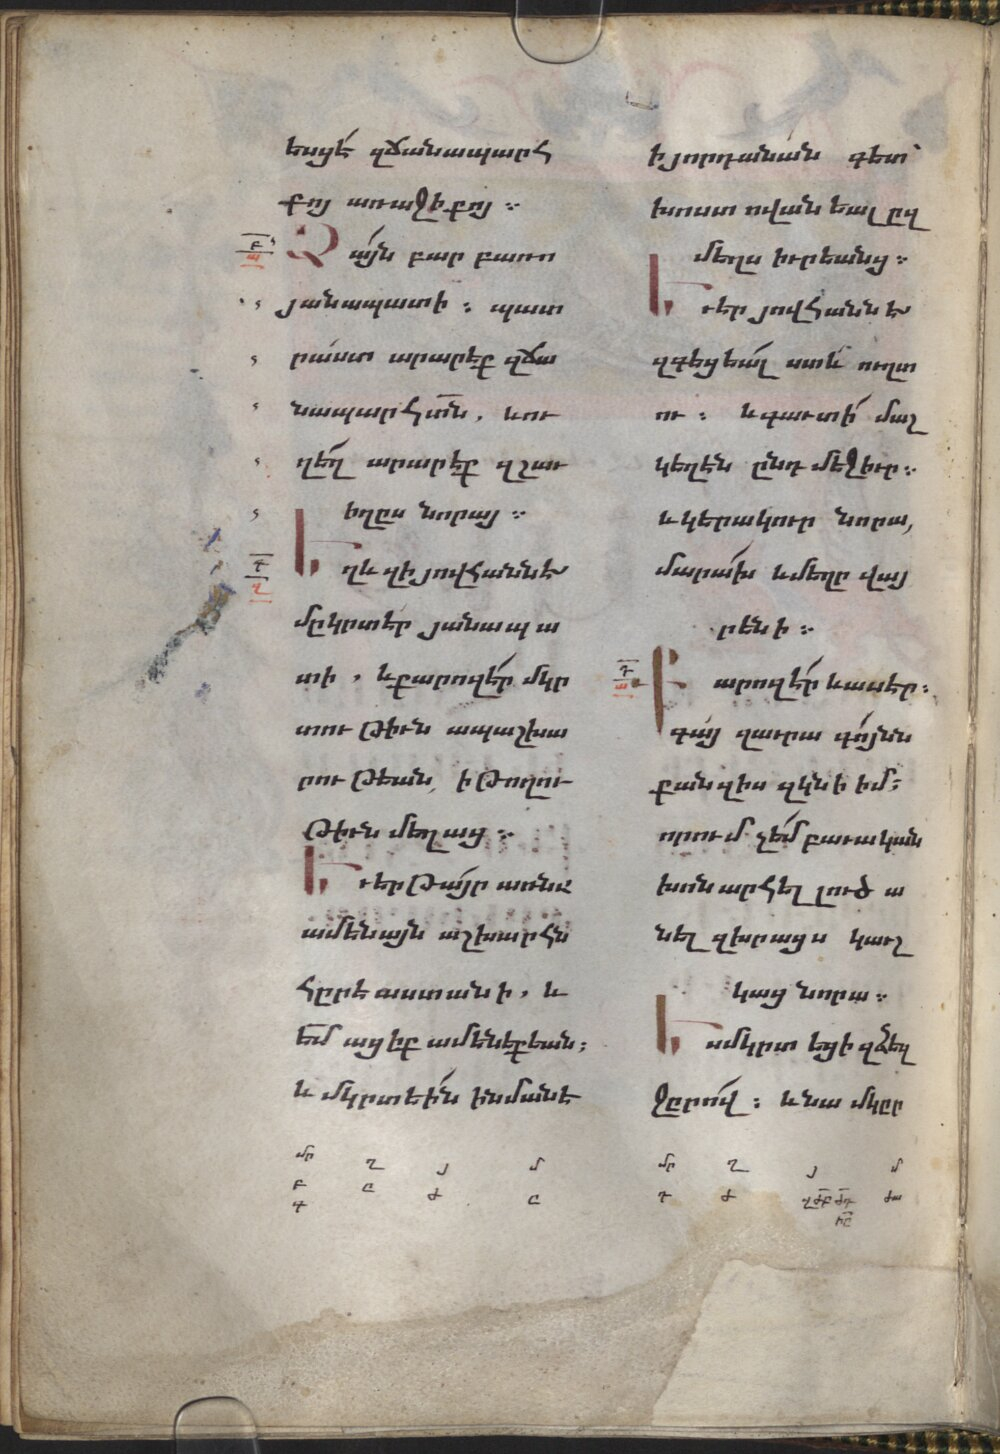 եսցէ զճանապարհ
քոյ առաջի քոյ ։
Ձայն բարբառո
յանապատի ։ պատ
րաստ արարէք զճա
նապարհ տն, ևու
ղեղ արարէք զշաւ
իղըս նորայ ։
Եղև զի յովհաննէս
մըկրտէր յանապա
տի, և քարոզէր մկր
տութիւն ապաշխա
րութեան, ի թողու
թիւն մեղաց ։
Եւ երթայր առնա
ամենայն աշխարհն
հըրէաստանի, և
եմ ացիք ամենեքեան ։
և մկրտեին ինմանէ
ի յորդանան գետ՝
խոստովանեալ ըզ
մեղս իւրեանց ։
Եւ էր յովհաննէս
զգեցեալ ստև ուղտ
ու ։ և գաւտի մաշ
կեղէն ընդ մէջ իւր ։
և կերակուր նորա,
մարախ և մեղր վայ
րենի ։
Քարոզէր և ասէր ։
գայ զաւրագոյնն
քան զիս զկնի իմ ։
որում չեմ բաւական
խոնարհել լուծա
նել զխրացս կաւշ
կաց նորա ։
Ես մկրտեցի զձեզ
ջըրով ։ և նա մկըր
մր ղ յ մ
բ ը ժ ը
գ
մր ղ յ մ
դ ժ ժա